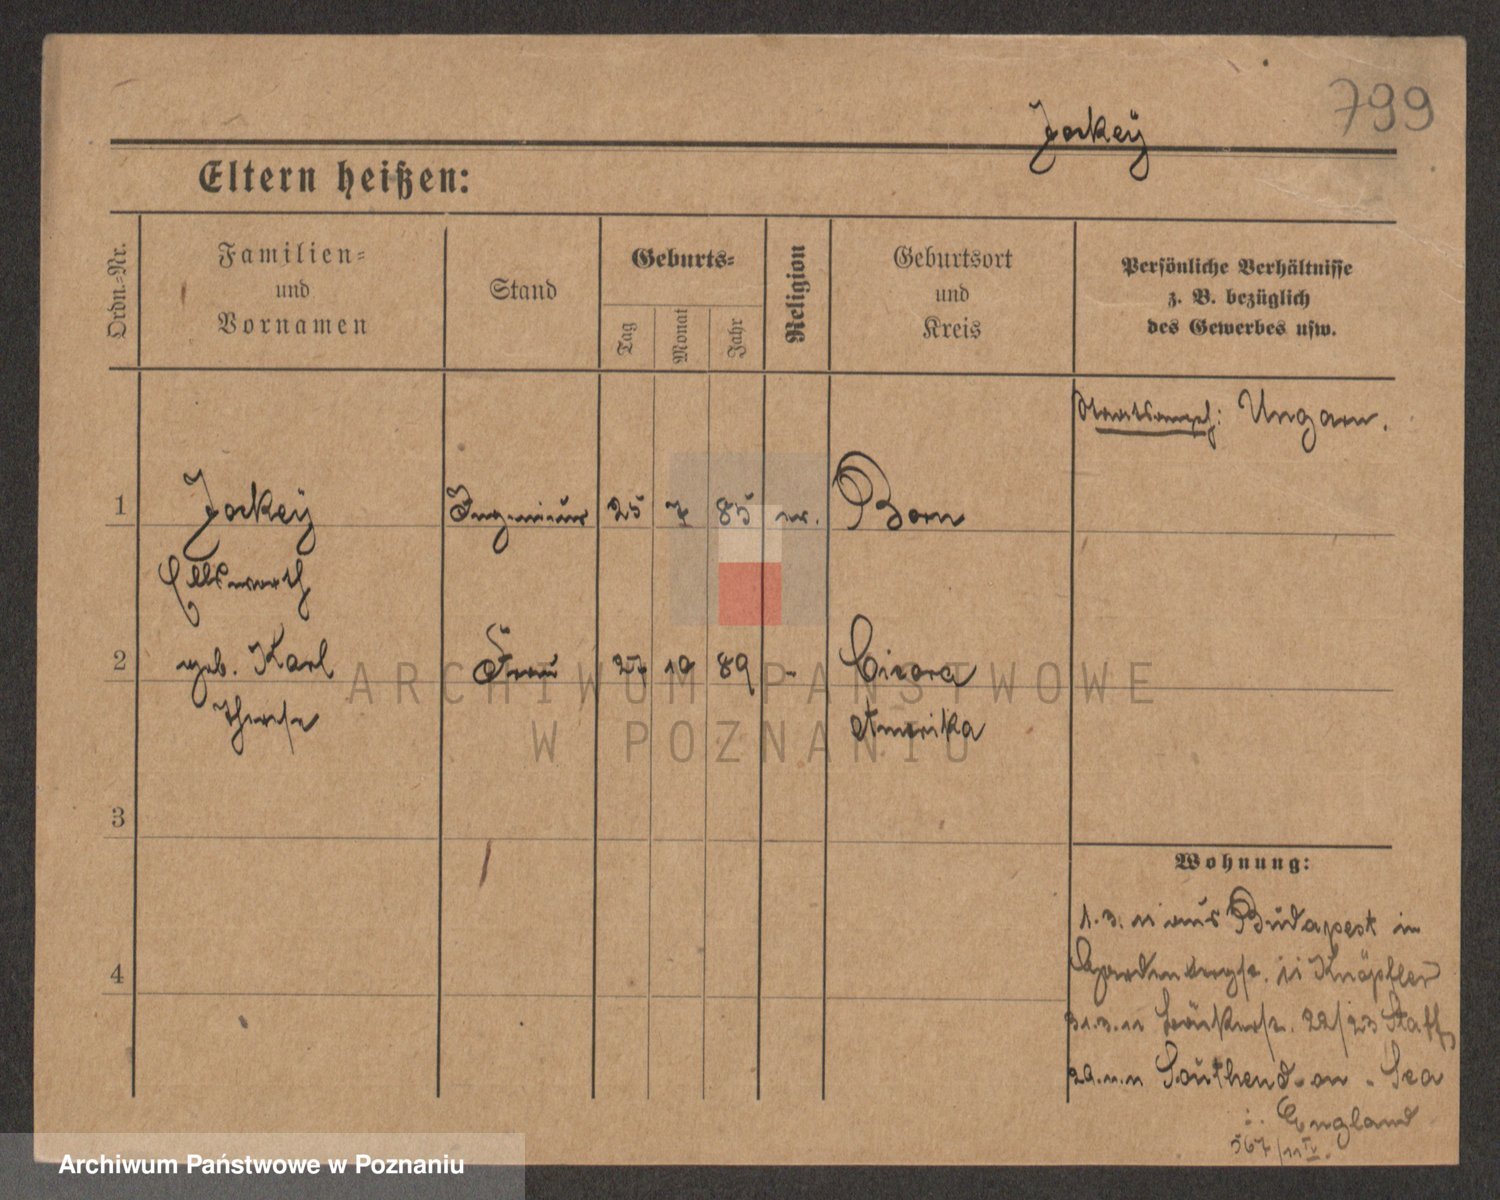 799
Jockey
Eltern heißen:
Ordn.-Nr.
Familien-
und
Vornamen
Stand
Geburts-
Tag
Monat
Jahr
Religion
Geburtsort
und
Kreis
Persönliche Verhältnisse
z. B. bezüglich
des Gewerbes usw.
Staatsangeh: Ungarn.
1 Jockey Ingenieur 25 7 85 Born
Ellsworth
2 geb. Karl Frau 27 10 89 "
Therese Amerika
3
4
Wohnung:
1.3.11 aus Budapest in
31.3.11 22/23
Southend-on-Sea
England
567/11 IV.
ARCHIWUM PAŃSTWOWE
W POZNANIU
Archiwum Państwowe w Poznaniu